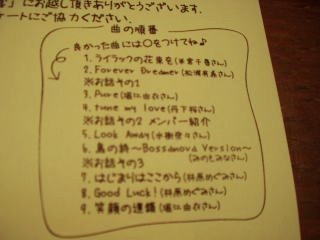 にお越し頂きありがとうございます.
ケートにご協力ください.
曲の順番
良かった曲には〇をつけてね♪
1. ライラックの花束を(米倉千尋さん)
2. Forever Dreamer(松浦有希さん)
※お話その1
3. Pure(堀江由衣さん)
4. tune my love(丹下桜さん)
※お話その2 メンバー紹介
5. Look Away(水樹奈々さん)
6. 鳥の詩~Bossanova Version~
(みのもみなさん)
※お話その3
7. はじまりはここから(井原めぐみさん)
8. Good Luck!(井原めぐみさん)
9. 笑顔の連鎖(堀江由衣さん)